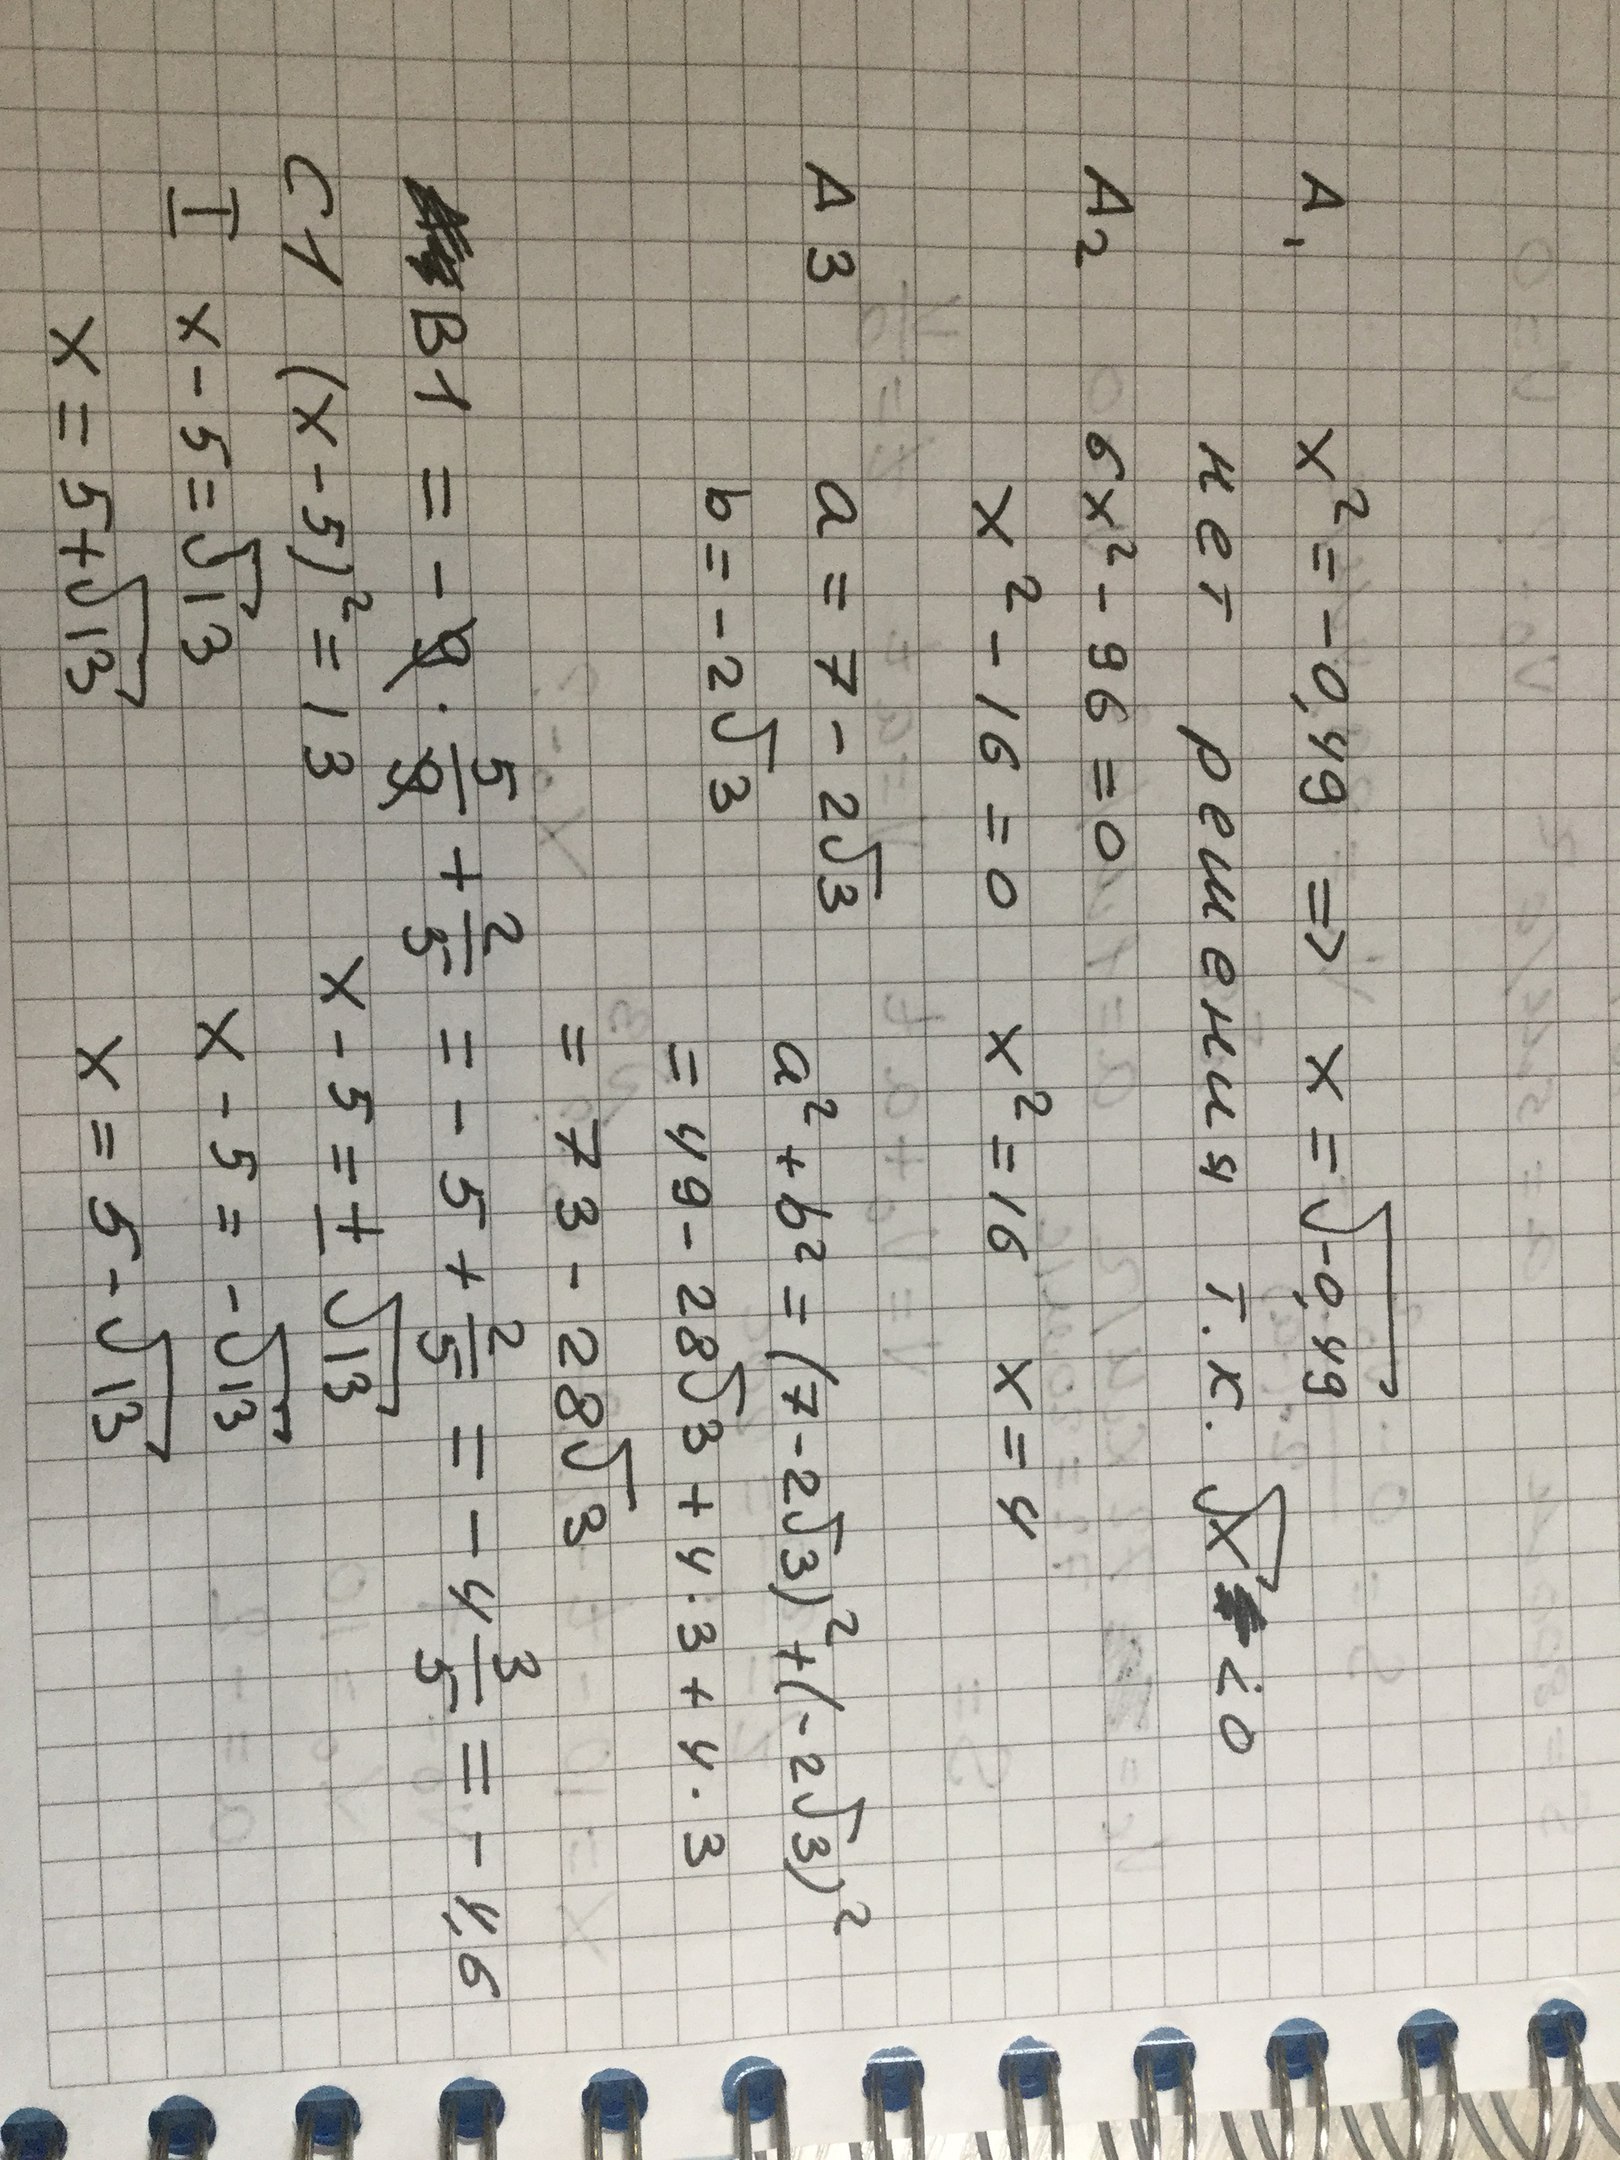 A₁ x² = -0,49 => x = √-0,49
нет решения т.к. √x < 0
A₂ 6x² - 96 = 0
x² - 16 = 0 x² = 16 x = 4
A3 a = 7 - 2√3 a² + b² = (7 - 2√3)² + (-2√3)²
b = -2√3 = 49 - 28√3 + 4·3 + 4·3
= 73 - 28√3
B1 = -9 · 5/9 + 2/5 = -5 + 2/5 = -4 3/5 = -4,6
C1 (x - 5)² = 13 x - 5 = ± √13
I x - 5 = √13 x - 5 = -√13
x = 5 + √13 x = 5 - √13